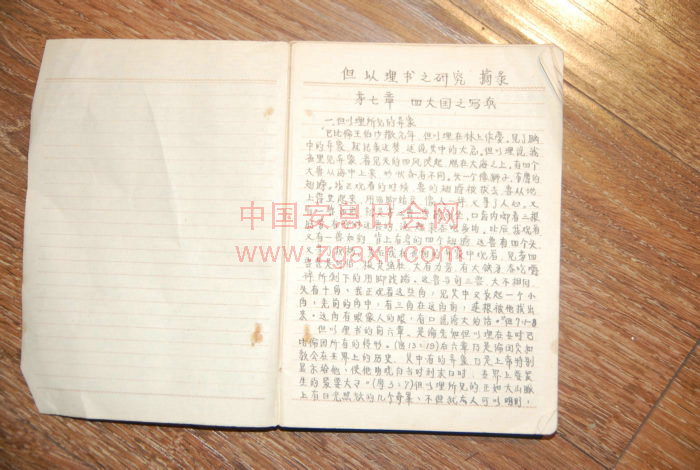 但以理书之研究 摘录
第七章 四大国之写我
一.但以理所见的异象
"巴比伦王伯沙撒元年,但以理在床上作梦,见了脑
中的异象,就记录这梦,述说其中的大意。但以理说,我
夜里见异象,看见天的四风陡起,刮在大海之上,有四个
大兽从海中上来,形状各有不同。头一个像狮子,有鹰的
翅膀,我正观看的时候,兽的翅膀被拔去,兽从地
上得立起来,用两脚站立,像人一样,又得了人心。又
中国安息日会网
口齿内啣着三根
此后,我观看
又有一兽如豹,背上有鸟的四个翅膀,这兽有四个头,
www.zgaxr.com
中观看,见第四
大有力量,有大铁牙,吞吃嚼
碎,所剩下的用脚践踏。这兽与前三兽大不相同,
头有十角,我正观看这些角,见其中又长起一个小
角,先前的角中,有三角在这角前,连根被他拔出
来。这角有眼像人的眼,有口说夸大的话。"但7:1-8
但以理书的前六章,是论先知但以理在古时巴
比伦国所有的情形。后六章乃是论国实和
教会在世界上的历史,其中有的异象乃是上帝特别
显示给他,使他明晓自当时到末日时,世界上要发
生的紧要大事。(摩3:7)但以理所见的正如大山脉
上有日光照耀的几个奇峰,不但就古人可以明明,